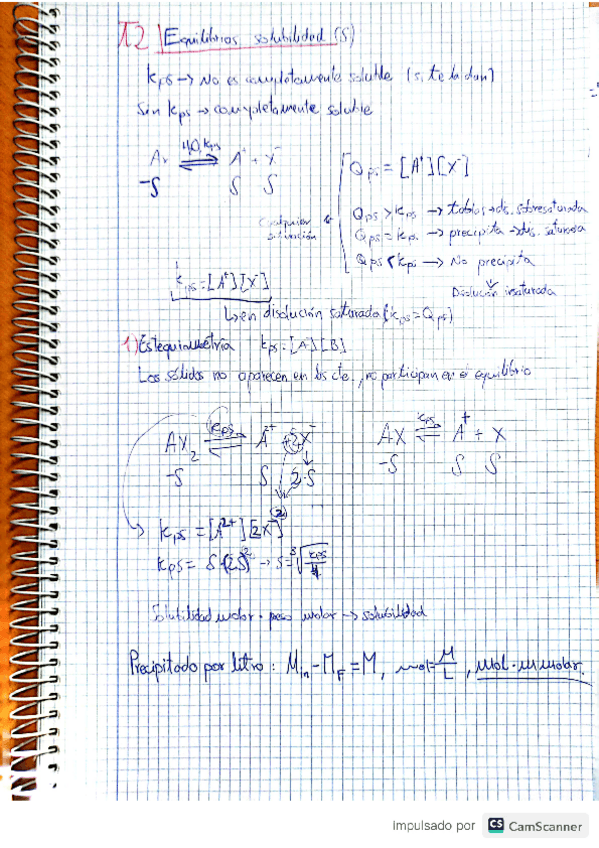 T2 Equilibrios solubilidad (S)
Kps → No es completamente soluble (si te la dan)
Sin Kps → completamente soluble
Ax ⇌ A⁺ + X⁻
H₂O, Kps
-S S S
Qps = [A⁺][X⁻]
Cualquier situación
Qps > Kps → dis. sobresaturada
Qps = Kps → precipita → dis. saturada
Qps < Kps → No precipita
Disolución insaturada
Kps = [A⁺][X⁻]
↳ en disolución saturada (Kps = Qps)
1) Estequiometría Kps = [A][B]
Los sólidos no aparecen en las cte, no participan en el equilibrio
AX₂ ⇌ A²⁺ + 2X⁻
Kps
-S S 2·S
AX ⇌ A⁺ + X
Kps
-S S S
→ Kps = [A²⁺][2X⁻]⁽²⁾
Kps = S·(2S)² → S = ³√(Kps/4)
Solubilidad molar · peso molar → solubilidad
Precipitado por litro: Min - MF = M, mol = M/L, mol · m molar.
Impulsado por CS CamScanner